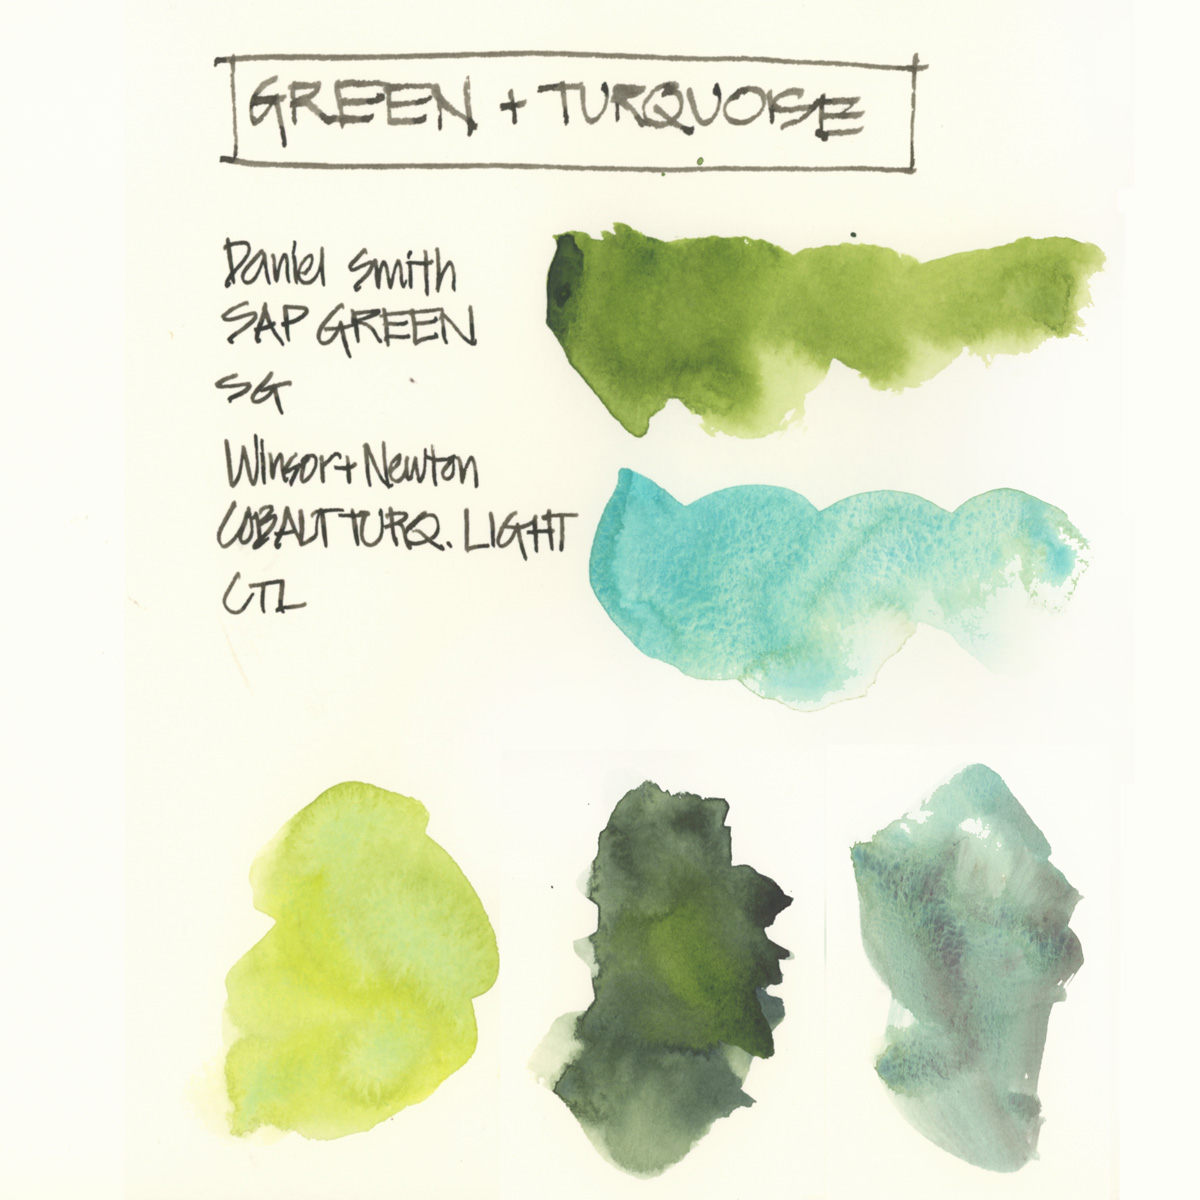 GREEN + TURQUOISE
Daniel Smith
SAP GREEN
SG
Winsor + Newton
COBALT TURQ. LIGHT
CTL